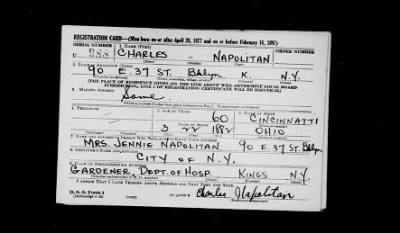 REGISTRATION CARD—(Men born on or after April 28, 1877 and on or before February 16, 1897)
SERIAL NUMBER 1. NAME (Print) ORDER NUMBER
U CHARLES NAPOLITAN
2. PLACE OF RESIDENCE (Print)
90 E. 37 ST. Bklyn K. N.Y.
[THE PLACE OF RESIDENCE GIVEN ON THE LINE ABOVE WILL DETERMINE LOCAL BOARD
JURISDICTION; LINE 2 OF REGISTRATION CERTIFICATE WILL BE IDENTICAL]
3. MAILING ADDRESS
Same
4. TELEPHONE
60 CINCINNATI
3 22 1882 OHIO
7. NAME AND ADDRESS OF PERSON WHO WILL ALWAYS KNOW YOUR ADDRESS
MRS. JENNIE NAPOLITAN 90 E. 37 ST. Bklyn
8. EMPLOYER'S NAME AND ADDRESS
CITY OF N.Y.
9. PLACE OF EMPLOYMENT OR BUSINESS
GARDENER DEPT. OF HOSP. KINGS N.Y.
I AFFIRM THAT I HAVE VERIFIED ABOVE ANSWERS AND THAT THEY ARE TRUE.
D. S. S. Form 1 Charles Napolitan